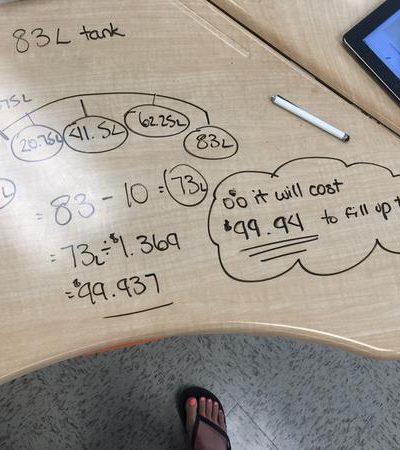 83L tank
75L
20.75L 41.5L 62.25L 83L
L
= 83 - 10 = 73L
= 73L ÷ $1.369
= $99.937
∴ it will cost
$99.94 to fill up